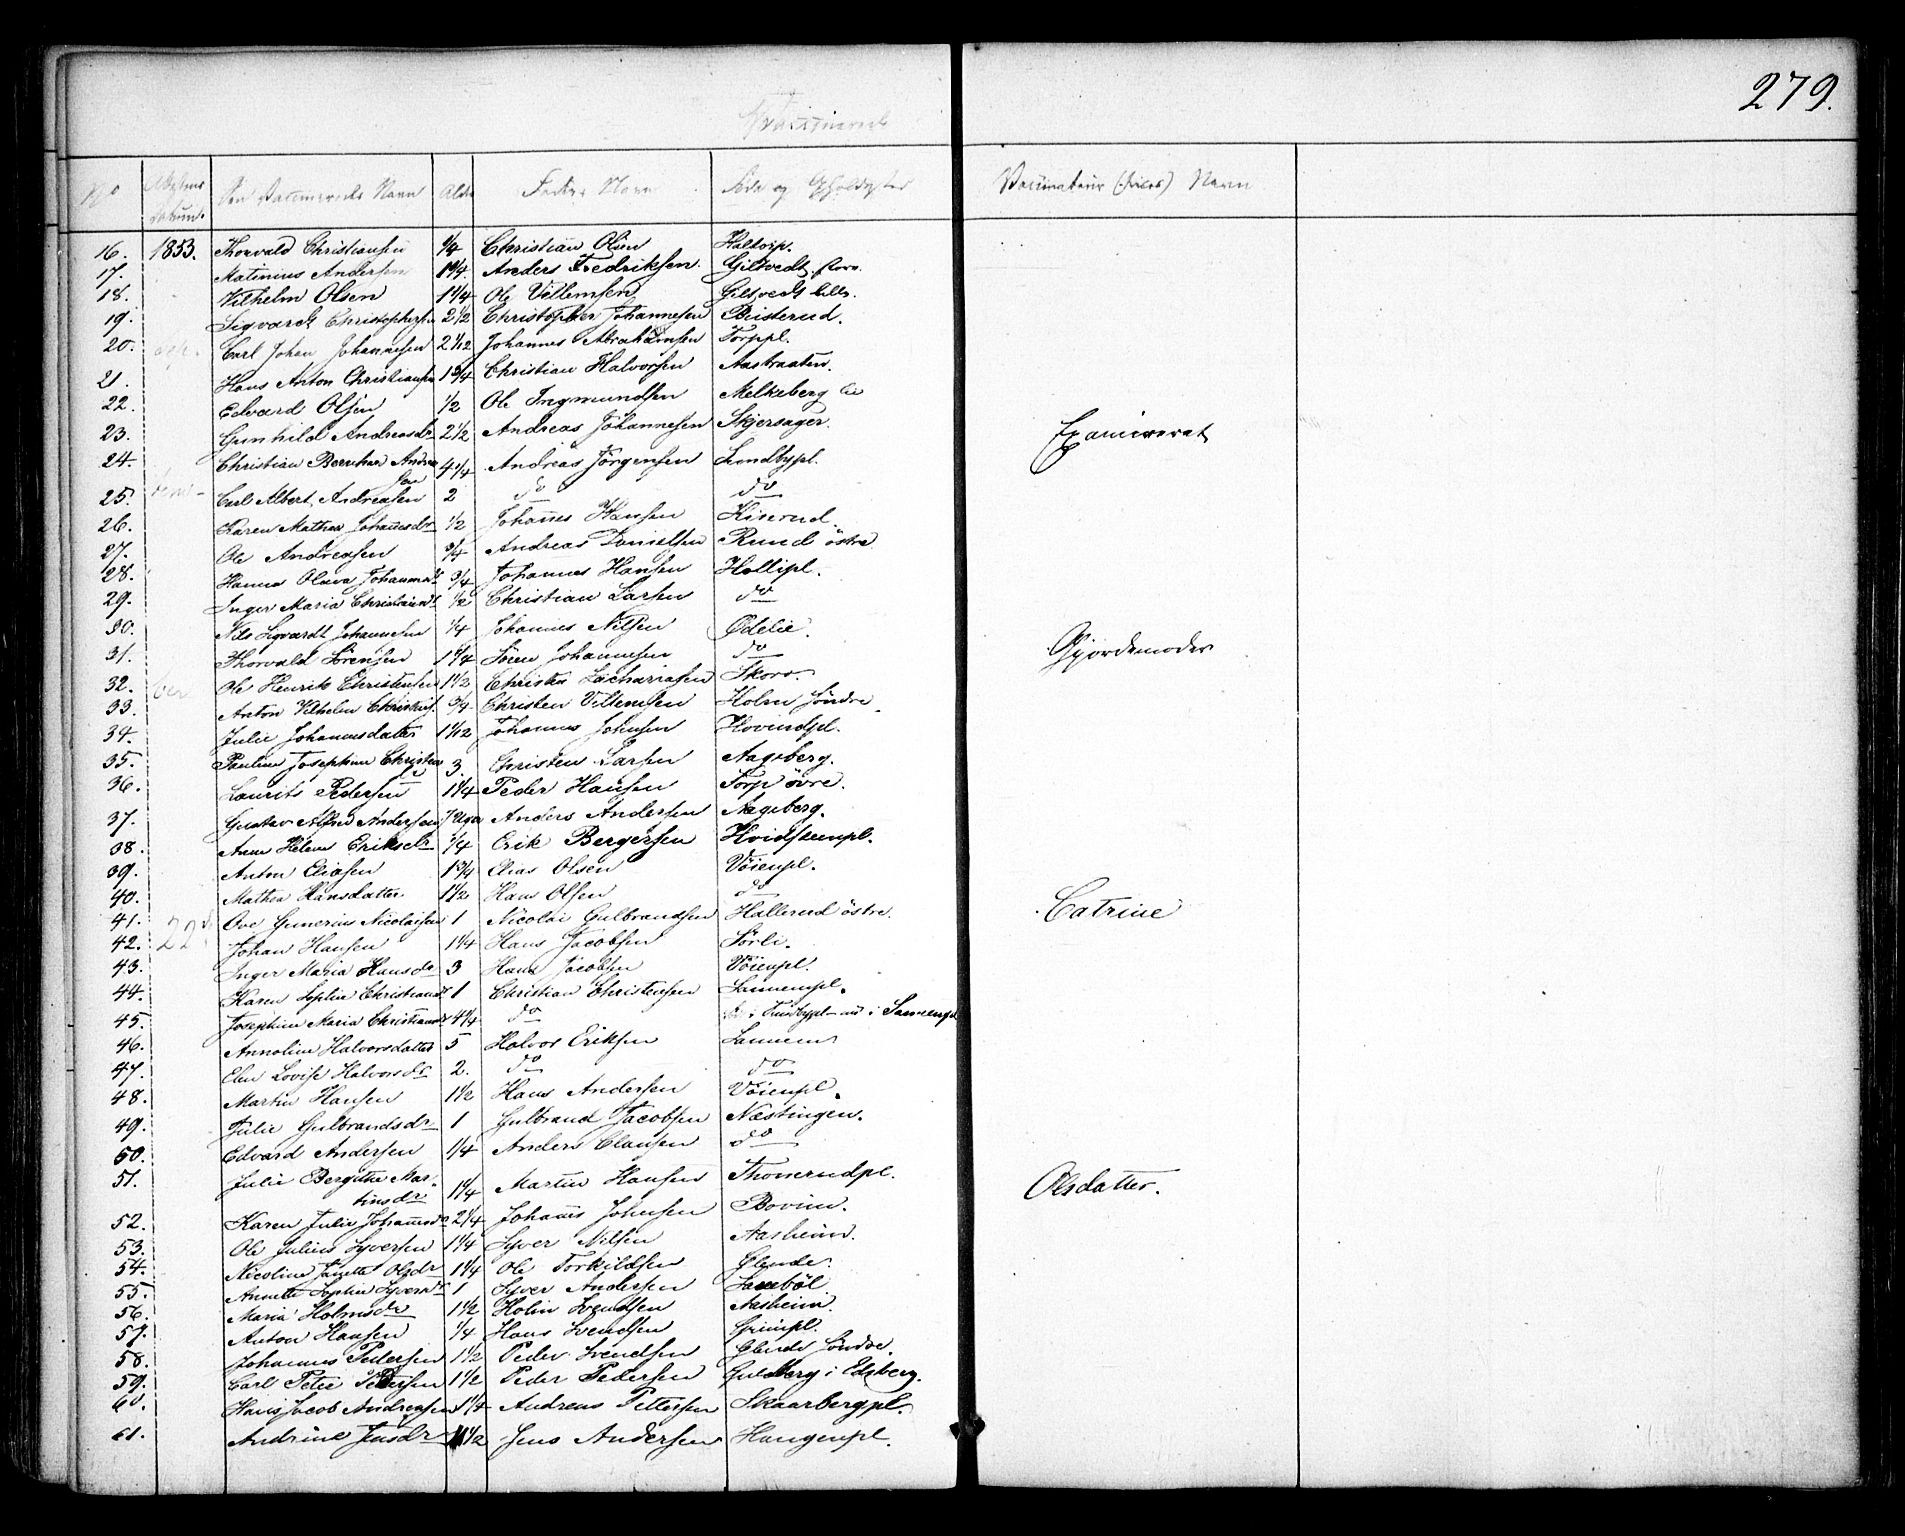 279.
Vaccinerede
No Den Vaccineredes Navn Alder Faders Navn Sted og Opholdssted Vaccinateur Navn
16. 1853. Thorvald Christiansen 1/4 Christian Olsen Haltorp.
17. Matinius Andersen Anders Fredriksen. Giltvedt store.
18. Vilhelm Olsen 1 1/4 Ole Villemsen Giltvedt lille.
19. Sigvardt Christophersen 2 1/2 Christopher Johannesen Busterud.
20. Carl Johan Johannesen 2 1/12 Johannes Abrahamsen Torppl.
21. Hans Anton Christiansen 1 3/4 Christian Halvorsen Aastraaten.
22. Edvard Olsen 1/2 Ole Ingmundsen Melkeberg lie
23. Gunhild Andreasdr 2 1/2 Andreas Johannesen Skjersager.
24. Christian Bernhar Andreasen 4 1/4 Andreas Jörgensen Lundbypl.
Examineret
25. Carl Albert Andreasen 2 do do
26. Karen Mathea Johannesdr 1/2 Johannes Hansen Kiserud.
27. Ole Andreasen 3/4 Andreas Danielsen Ruud östre
28. Hanna Olava Johannesdr 3/4 Johannes Hansen Hollipl.
29. Inger Maria Christiansdr 1/2 Christian Larsen do
30. Nils Sigvardt Johannesen 1/4 Johannes Nilsen Ödelie.
31. Thorvald Sörensen 1 1/4 Sören Johannesen do
Gjordemoder
32. Ole Henrik Christensen 1 1/2 Christen Zachariasen Skoro.
33. Anton Vilhelm Christens. 3/4 Christen Villemsen Holm söndre.
34. Julie Johannesdatter 1 1/12 Johannes Johnsen Hovindpl.
35. Pauline Josephine Christens 3. Christen Larsen Aageberg.
36. Laurits Pedersen 1 1/4 Peder Hansen Torp övre.
37. Gustav Alfred Andersen 7 Uger Anders Andersen Aageberg.
38. Anne Helene Eriksdr 1/4 Erik Bergersen Hvidsteenpl.
39. Anton Eliasen 1 3/4 Elias Olsen Vöienpl.
40. Mathea Hansdatter 1 1/2 Hans Olsen do
41. Ove Gunerius Nicolaisen 1 Nicolai Gulbrandsen Hallerud östre.
Catrine
42. 22. Johan Hansen 1 1/4 Hans Jacobsen Sörli.
43. Inger Maria Hansdr 3 Hans Jacobsen Vöienpl.
44. Karen Sophie Christiansdr 1 Christian Christensen Sannempl.
45. Josephine Maria Christiansdr 4 1/4 do i Sannempl
46. Annoline Halvorsdatter 5 Halvor Eriksen Sannem
47. Elen Lovise Halvorsdr 2. do do
48. Martin Hansen 1 1/2 Hans Andersen Vöienpl.
49. Julie Gulbrandsdr 1 Gulbrand Jacobsen Næstingen.
50. Edvard Andersen 1/4 Anders Clausen do
51. Julie Bergitte Martinsdr 1 1/4 Martin Hansen Thonerudpl.
Olsdatter.
52. Karen Julie Johannesdr 2 1/4 Johannes Johnsen Bovim.
53. Ole Julius Syversen 1 1/4 Syver Nilsen Aasheim.
54. Nicoline Janette Olsdr 1 1/4 Ole Torkildsen Glende.
55. Annette Sophie Syversdr 1 Syver Andersen Samböl
56. Maria Holmsdr 1 1/2 Holm Svendsen Aasheim.
57. Anton Hansen 1/4 Hans Svendsen Grimpl.
58. Johannes Pedersen 1 1/2 Peder Svendsen Glende söndre.
59. Carl Petter Pedersen 1 1/2 Peder Pedersen Guldberg i Edsberg.
60. Hans Jacob Andreasen 1 1/4 Andreas Pettersen Skaarbergpl.
61. Andrine Jensdr 1 1/2 Jens Andersen Haugenpl.